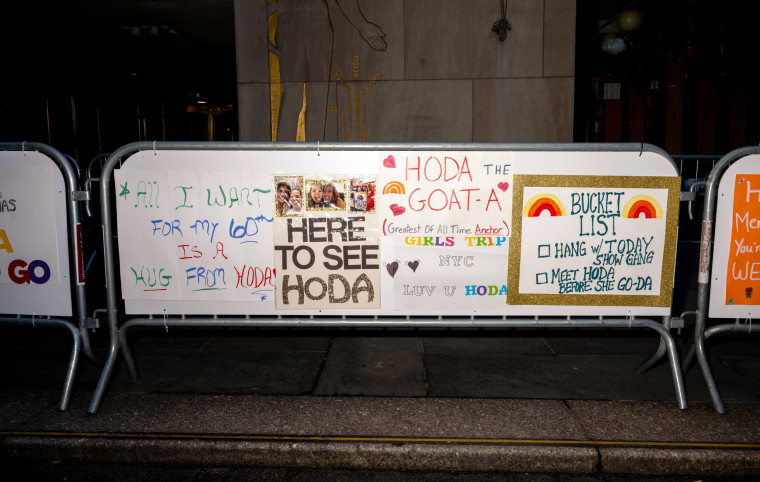 MAS
GO
*All I WANT
FOR MY 60TH
IS A
HUG FROM HODA!
HERE
TO SEE
HODA
HODA THE
GOAT-A
(Greatest Of All Time Anchor)
GIRLS TRIP
NYC
LUV U HODA
BUCKET
LIST
HANG W/TODAY
SHOW GANG
MEET HODA
BEFORE SHE GO-DA
Me
You'r
WE